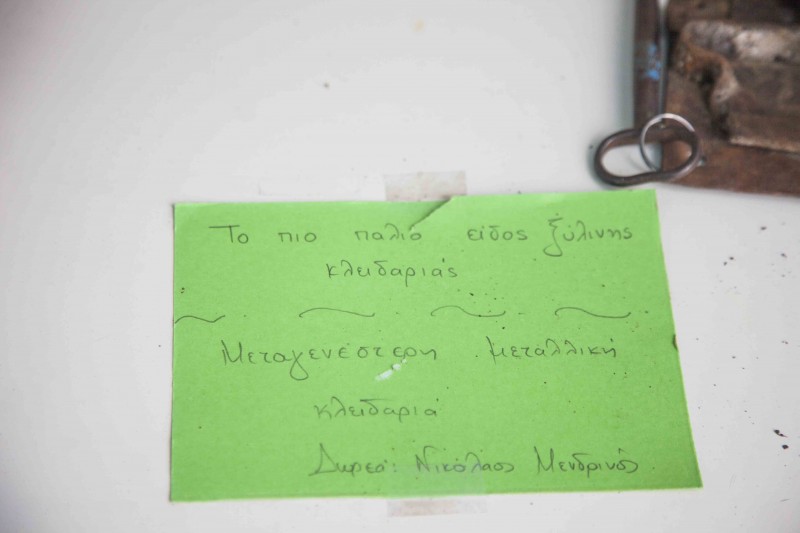 Το πιο παλιό είδος ξύλινης
κλειδαριάς
Μεταγενέστερη μεταλλική
κλειδαριά
Δωρεά: Νικόλαος Μενδρινός